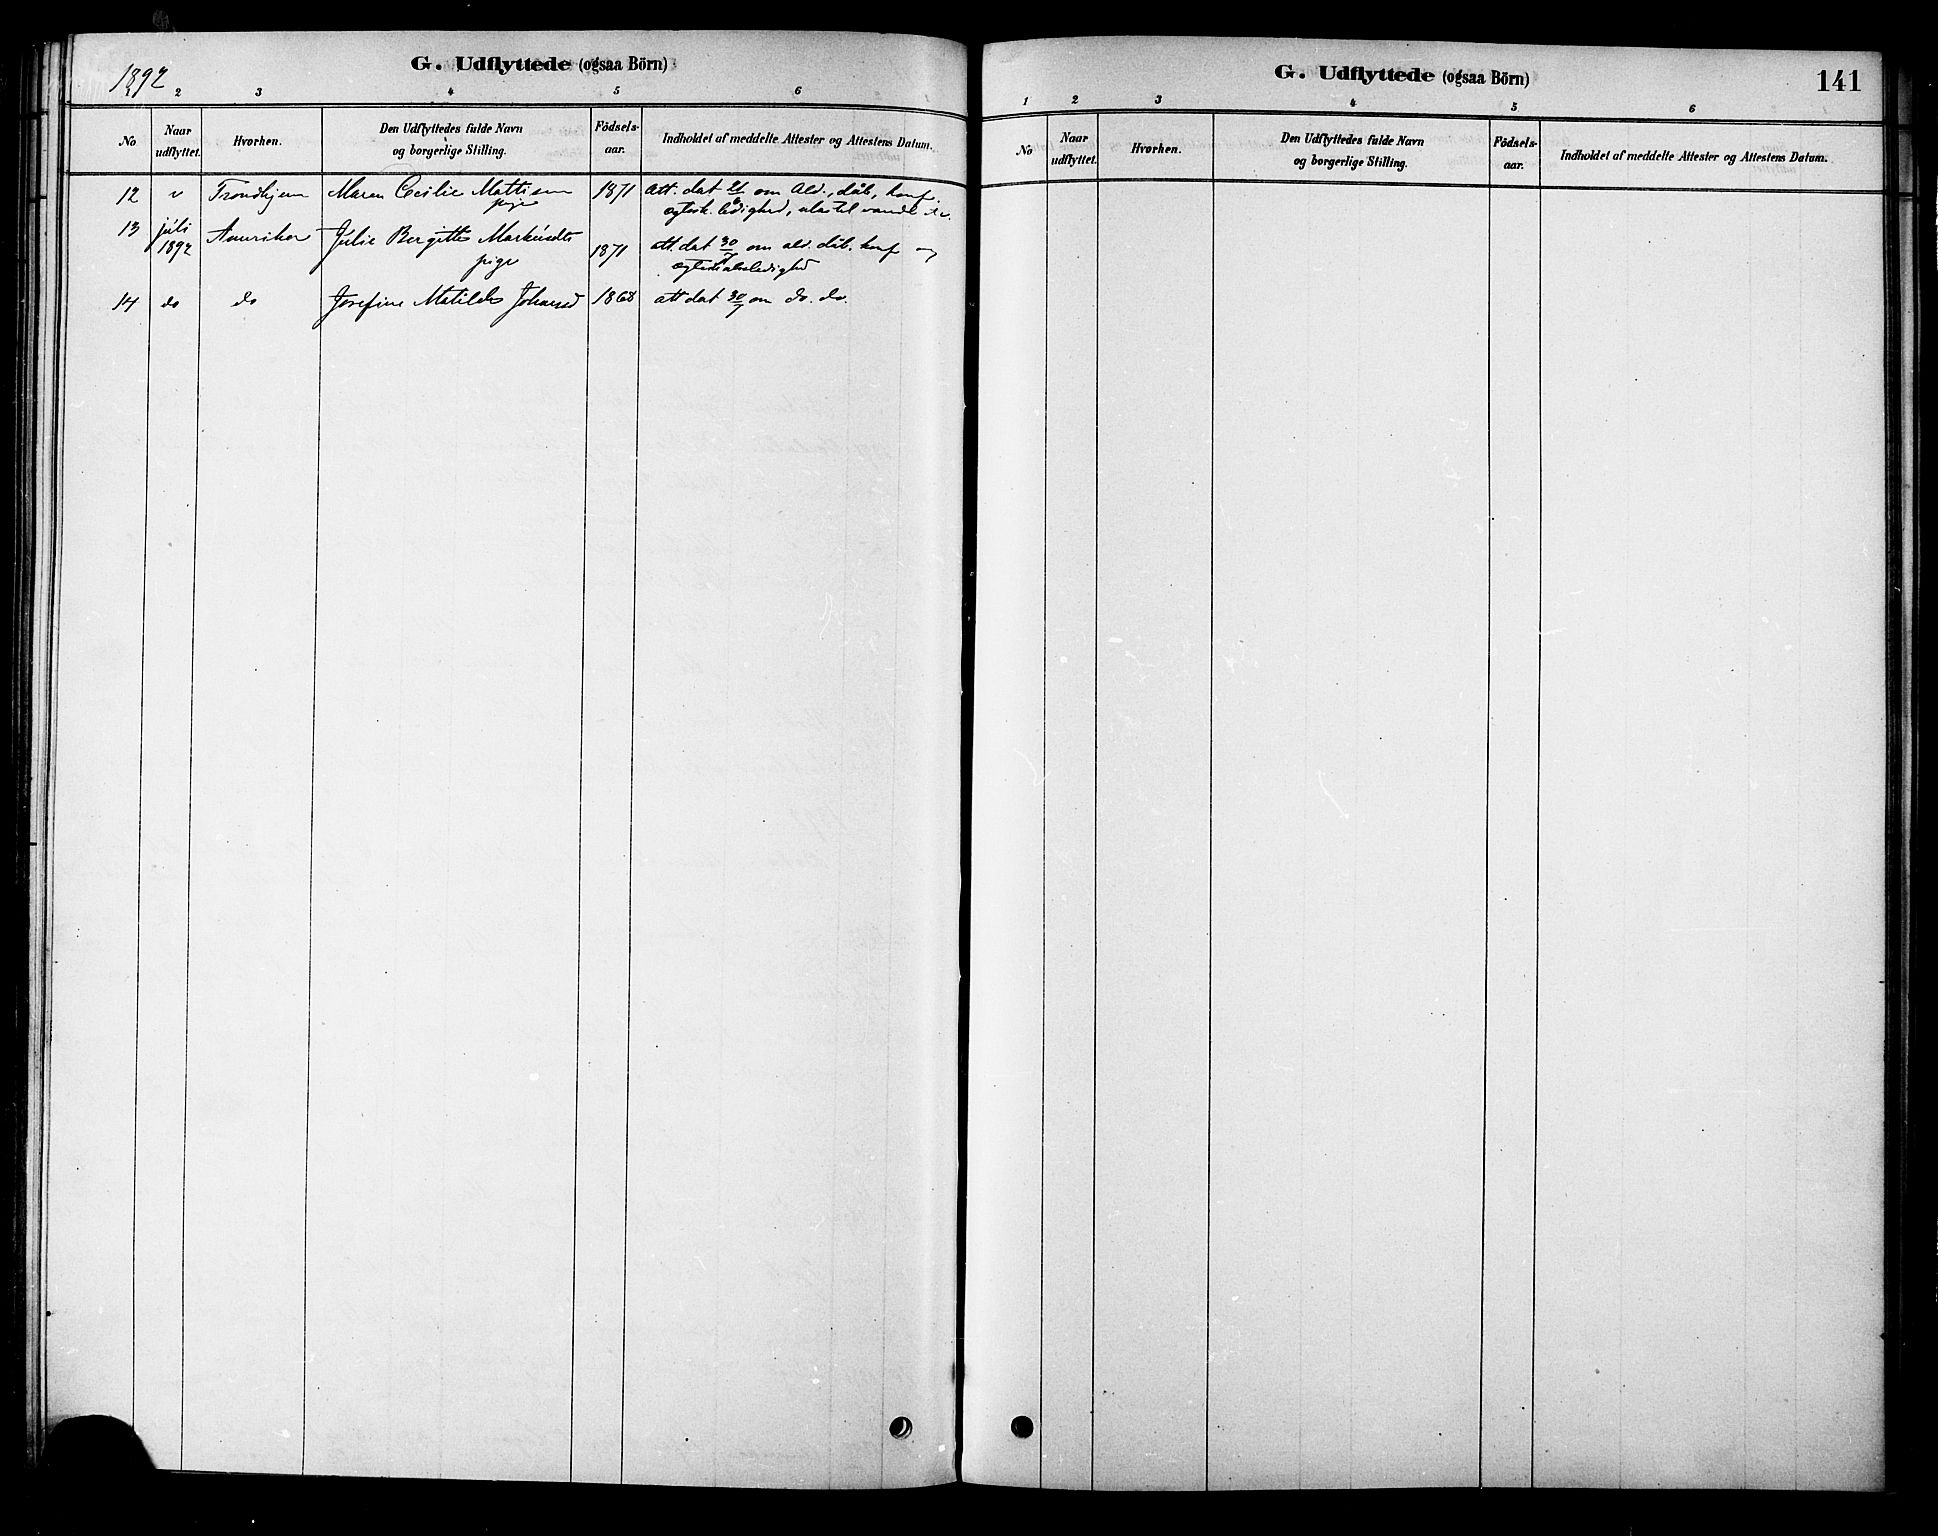 1892
G. Udflyttede (ogsaa Börn)
2 3 4 5 6
No
Naar udflyttet.
Hvorhen.
Den Udflyttedes fulde Navn og borgerlige Stilling.
Födsels-aar.
Indholdet af meddelte Attester og Attestens Datum.
12 " Trondhjem Maren Cecilie Mattisen 1871 Att. dat om Ald., dåb, konf.
pige ledighed,
13 juli 1892 Amerika Julie Bergitte Markusdtr 1871 att. dat 30/7 om ald. dåb. konf og
pige
14 do do Josefine Matilde Johansd 1868 att dat 30/7 om do. do.
G. Udflyttede (ogsaa Börn)
141
1 2 3 4 5 6
No
Naar udflyttet.
Hvorhen.
Den Udflyttedes fulde Navn og borgerlige Stilling.
Födsels-aar.
Indholdet af meddelte Attester og Attestens Datum.